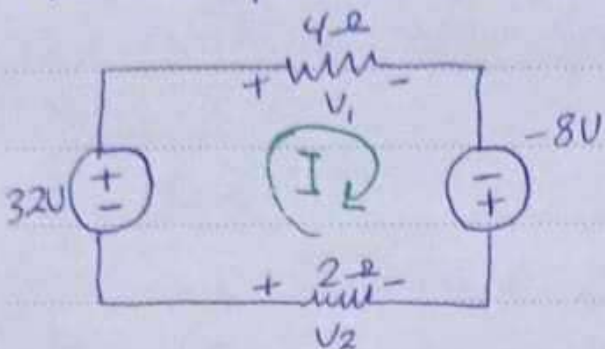 4Ω
+ -
V1
32V + -
I
-8V
- +
+ 2Ω -
V2